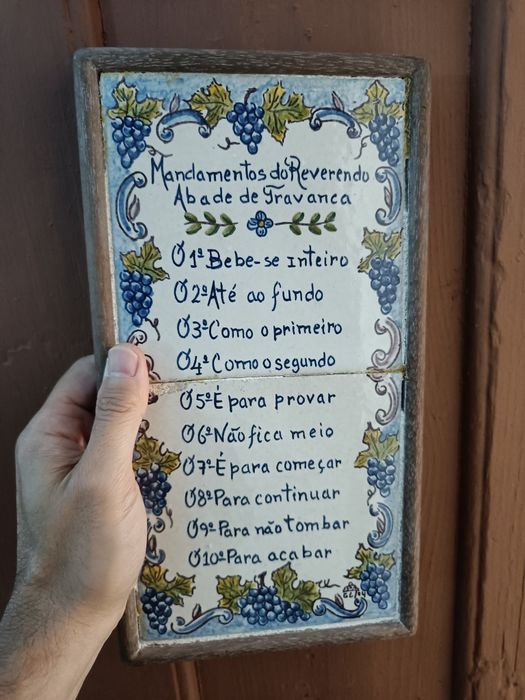 Mandamentos do Reverendo
Abade de Travanca
O 1º Bebe-se inteiro
O 2º Até ao fundo
O 3º Como o primeiro
O 4º Como o segundo
O 5º É para provar
O 6º Não fica meio
O 7º É para começar
O 8º Para continuar
O 9º Para não tombar
O 10º Para acabar